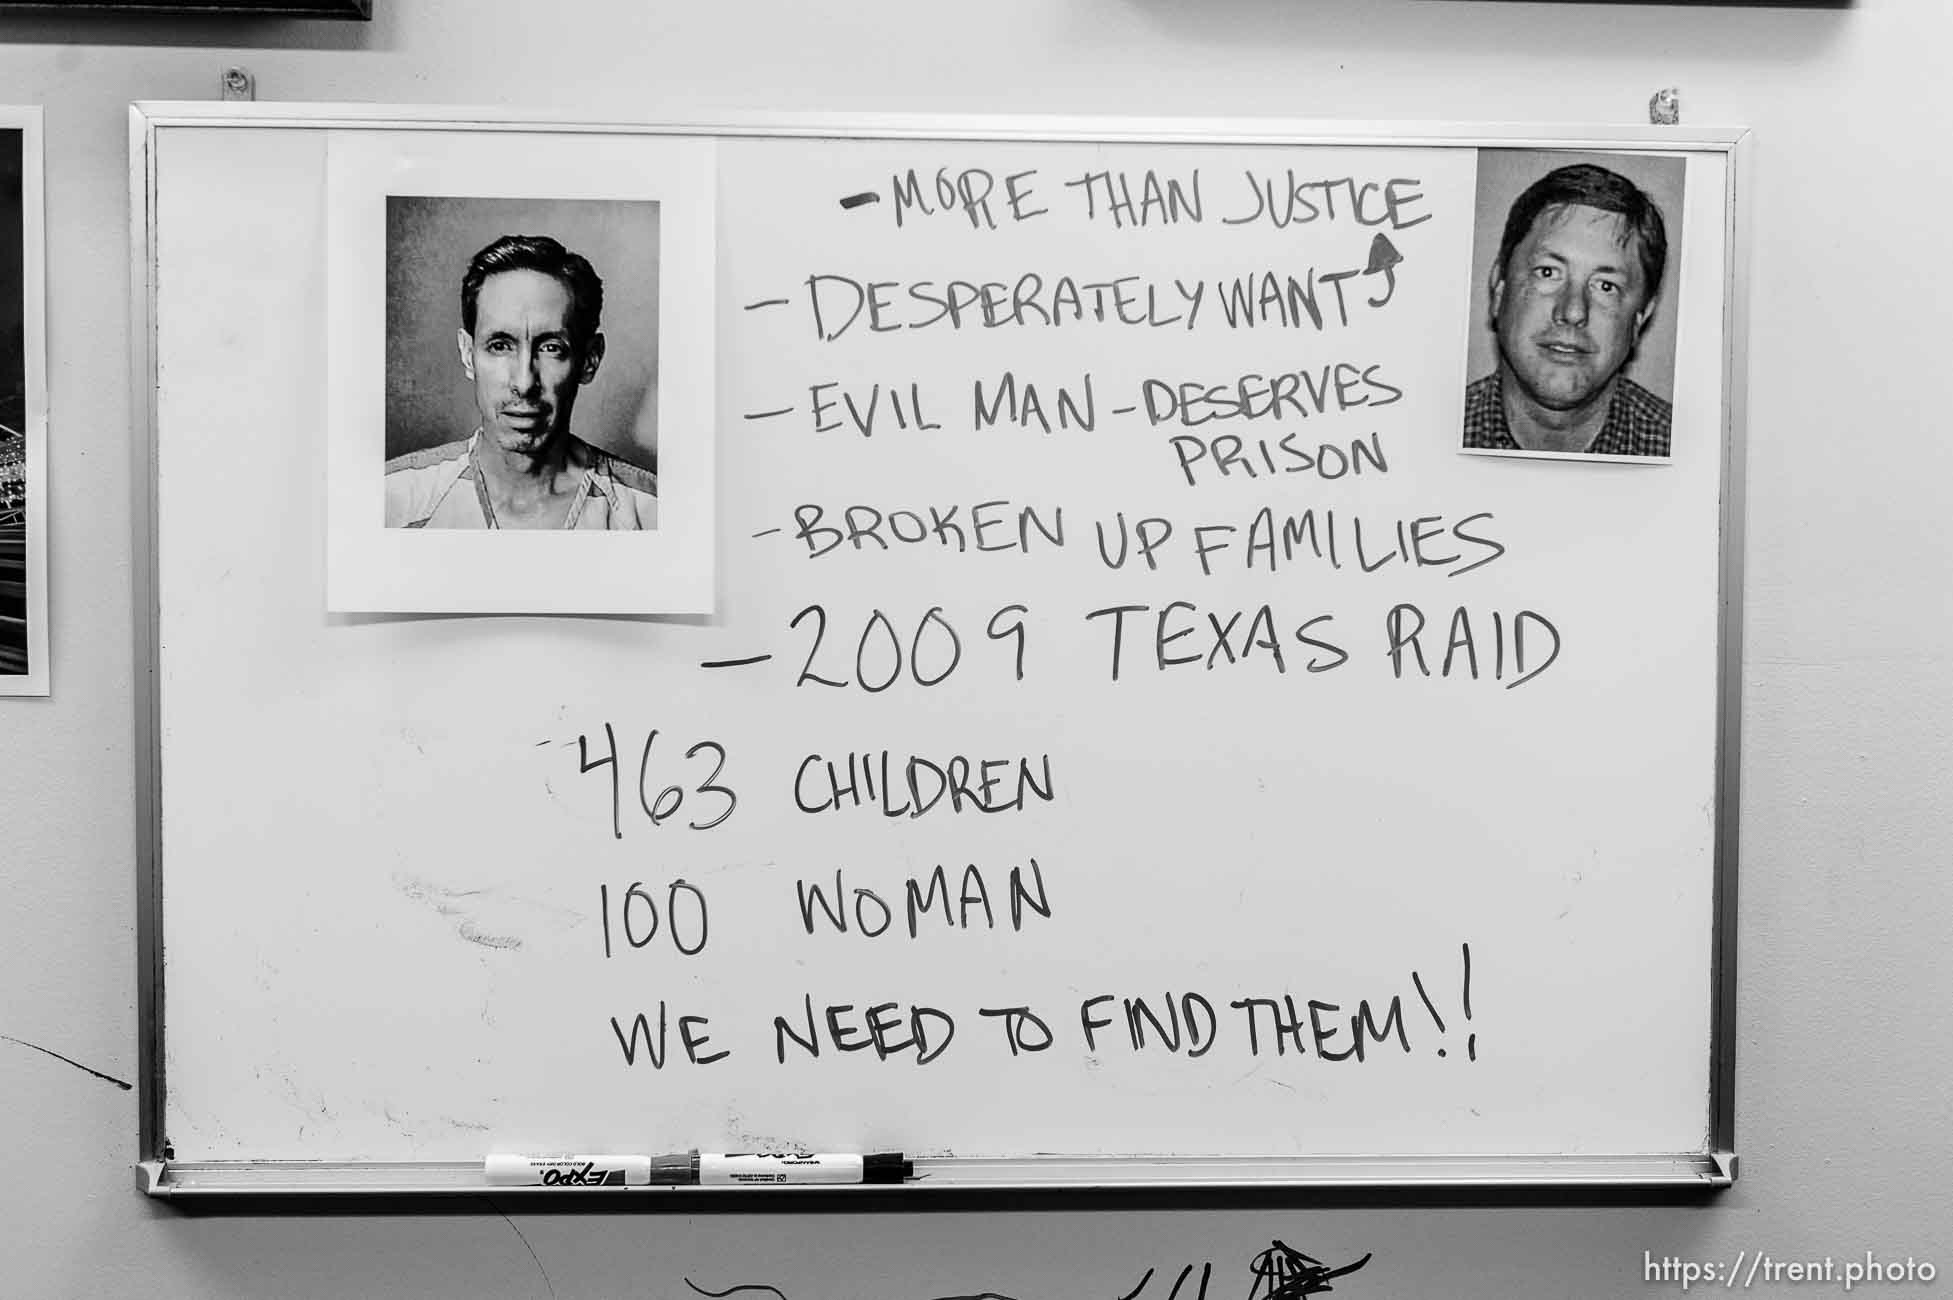 - MORE THAN JUSTICE
- DESPERATELY WANT
- EVIL MAN - DESERVES
PRISON
- BROKEN UP FAMILIES
- 2009 TEXAS RAID
463 CHILDREN
100 WOMAN
WE NEED TO FIND THEM!!
EXPO
https://trent.photo